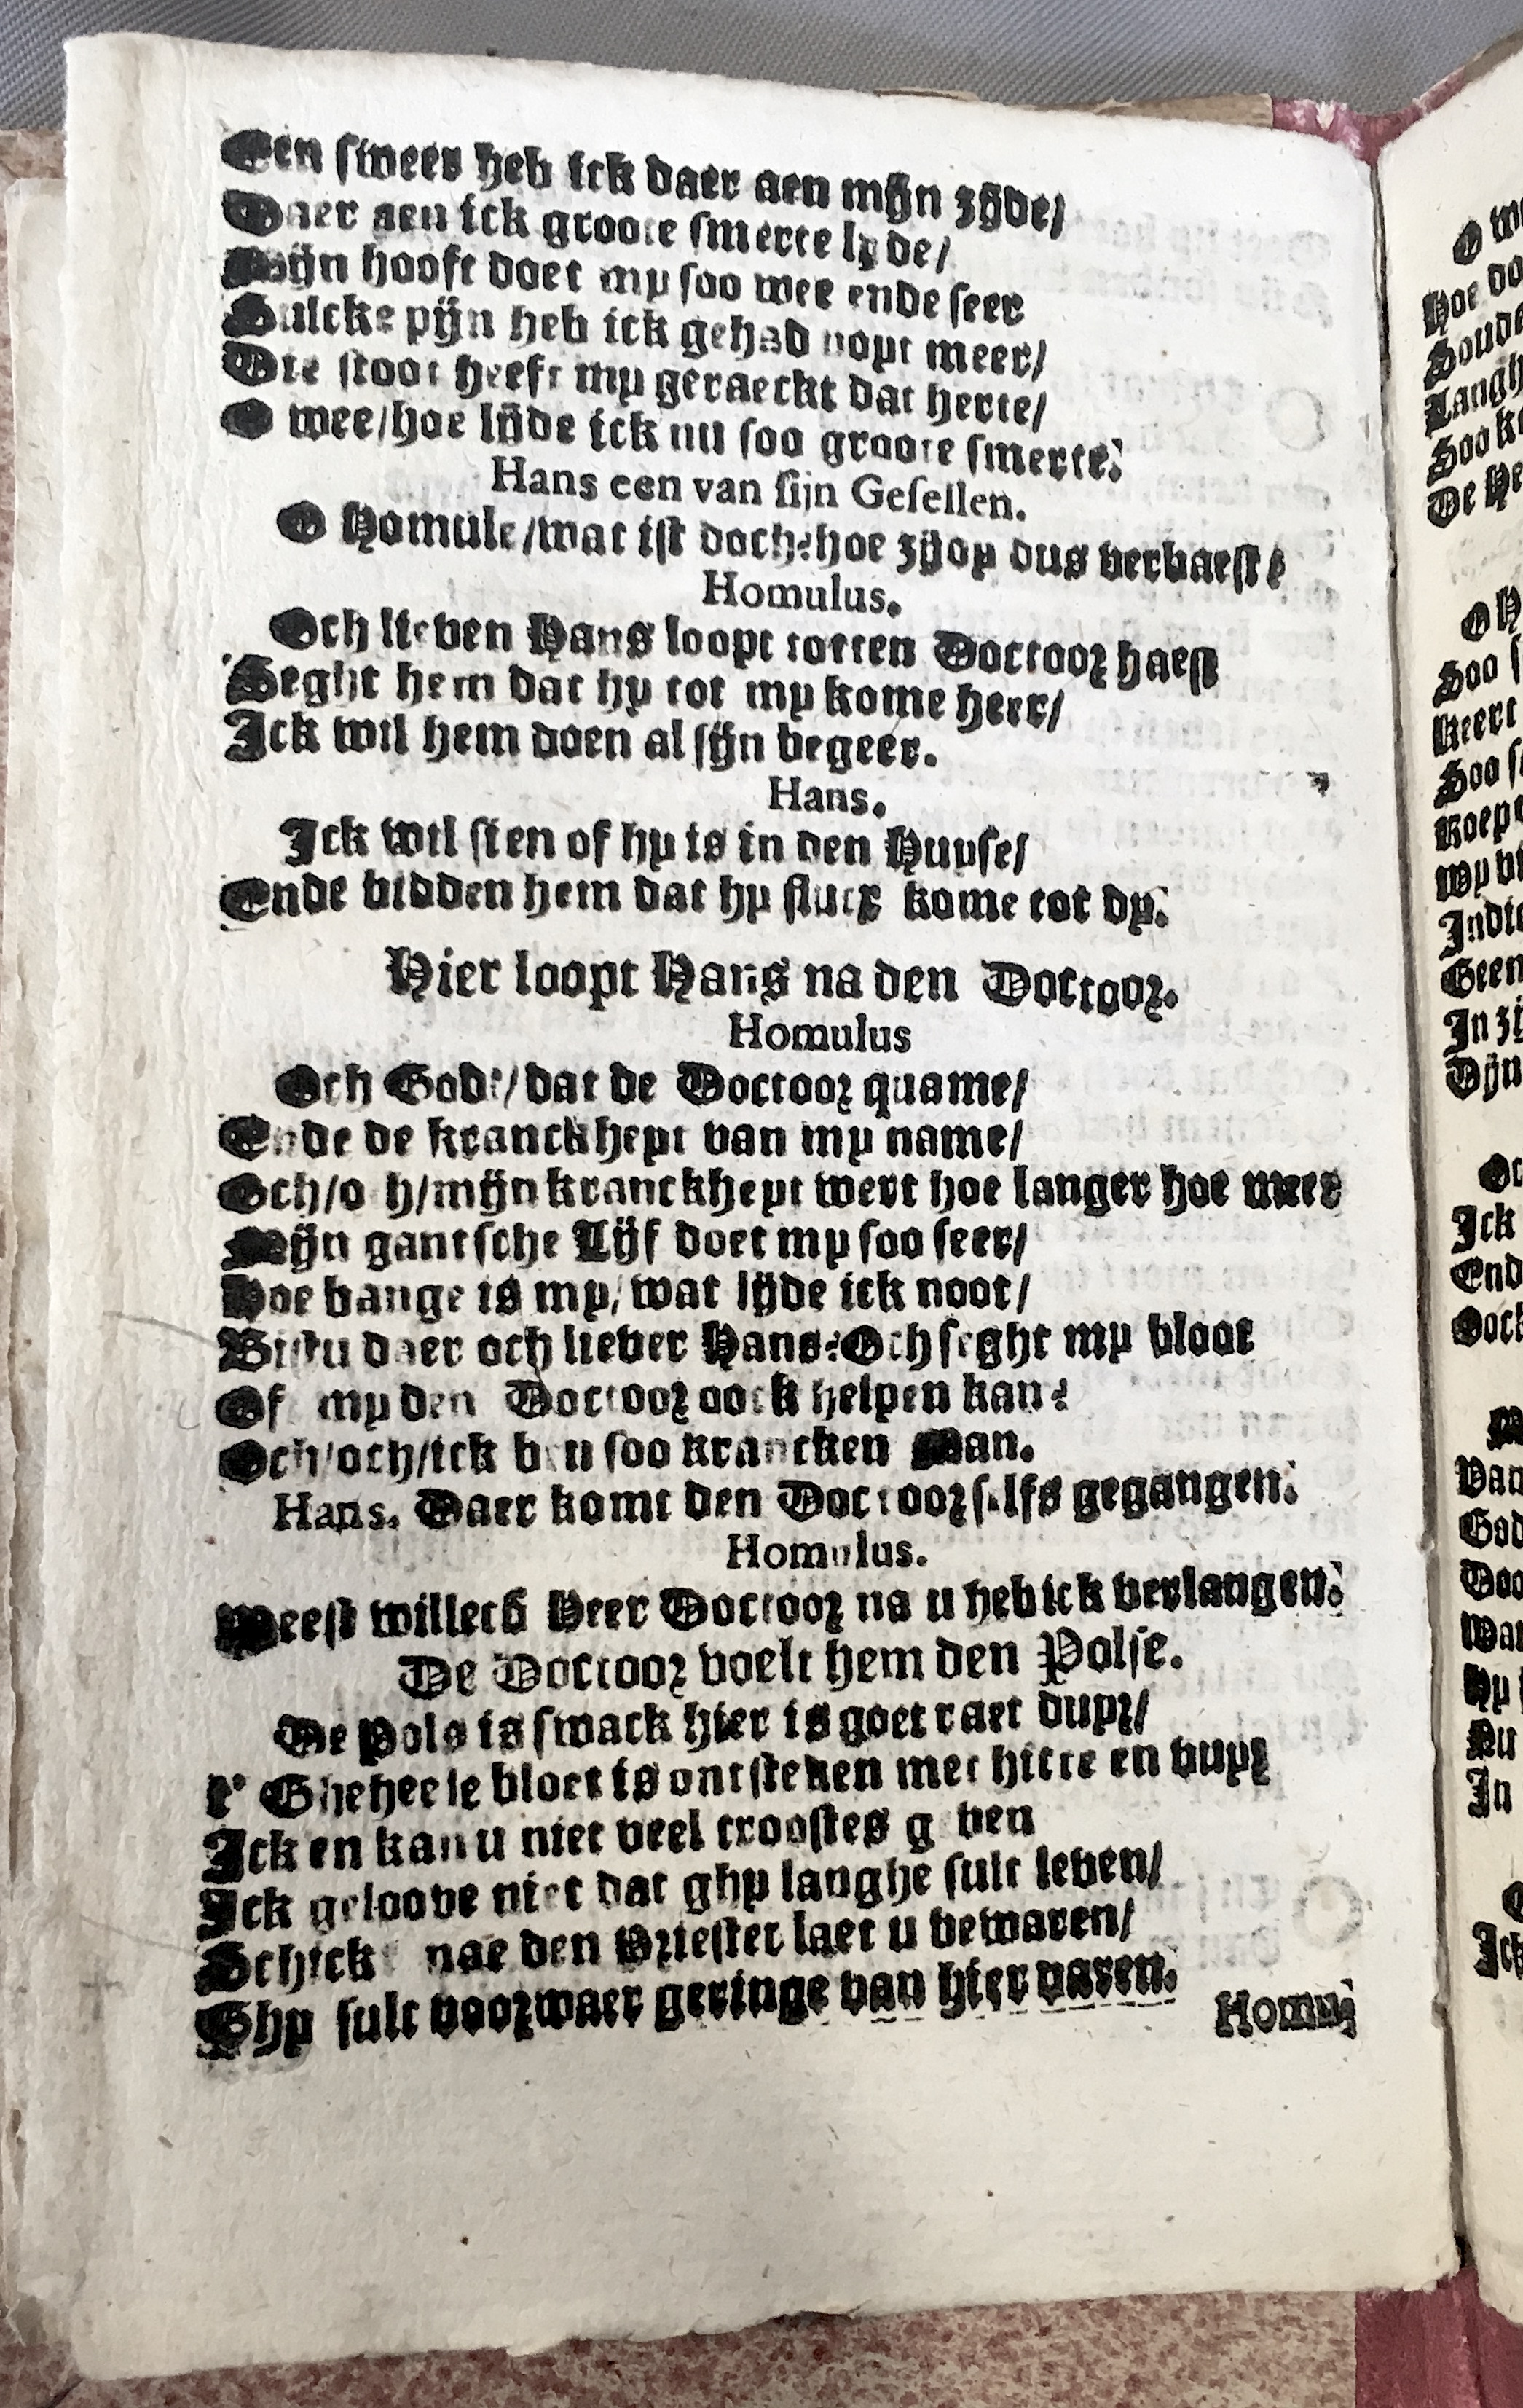 Een sweer heb ick daer aen mijn zijde/
Daer aen ick groote smerte lyde/
Mijn hooft doet my soo wee ende seer
Sulcke pijn heb ick gehad noyt meer/
Die stoot heeft my geraeckt dat herte/
O wee/hoe lijde ick nu soo groote smerte.
Hans een van sijn Gesellen.
O Homule/wat ist doch?hoe zijdy dus verbaest?
Homulus.
Och lieven Hans loopt totten Doctoor haest
Seght hem dat hy tot my kome heer/
Ick wil hem doen al sijn begeer.
Hans.
Ick wil sien of hy is in den Huyse/
Ende bidden hem dat hy flucx kome tot dy.
Hier loopt Hans na den Doctoor.
Homulus
Och Godt/dat de Doctoor quame/
Ende de kranckheyt van my name/
Och/och/mijn kranckheyt wert hoe langer hoe meer
Mijn gantsche Lijf doet my soo seer/
Hoe bange is my/wat lijde ick noot/
Bistu daer och liever Hans?Och seght my bloot
Of my den Doctoor oock helpen kan?
Och/och/ick ben soo krancken Man.
Hans. Daer komt den Doctoor selfs gegangen.
Homulus.
Weest willech Heer Doctoor na u heb ick verlangen.
De Doctoor voelt hem den Polse.
De Pols is swack hier is goet raet duyr/
t' Gheheele bloet is ontsteken met hitte en vuyr
Ick en kan u niet veel troostes geven
Ick geloove niet dat ghy langhe sult leven/
Schickt nae den Priester laet u bewaren/
Ghy sult voorwaer geringe van hier varen.
Homu
O
Hoe
Langh
De He
O H
Soo
Keert
Geen
Ick
End
Van
God
Doo
In
Ick